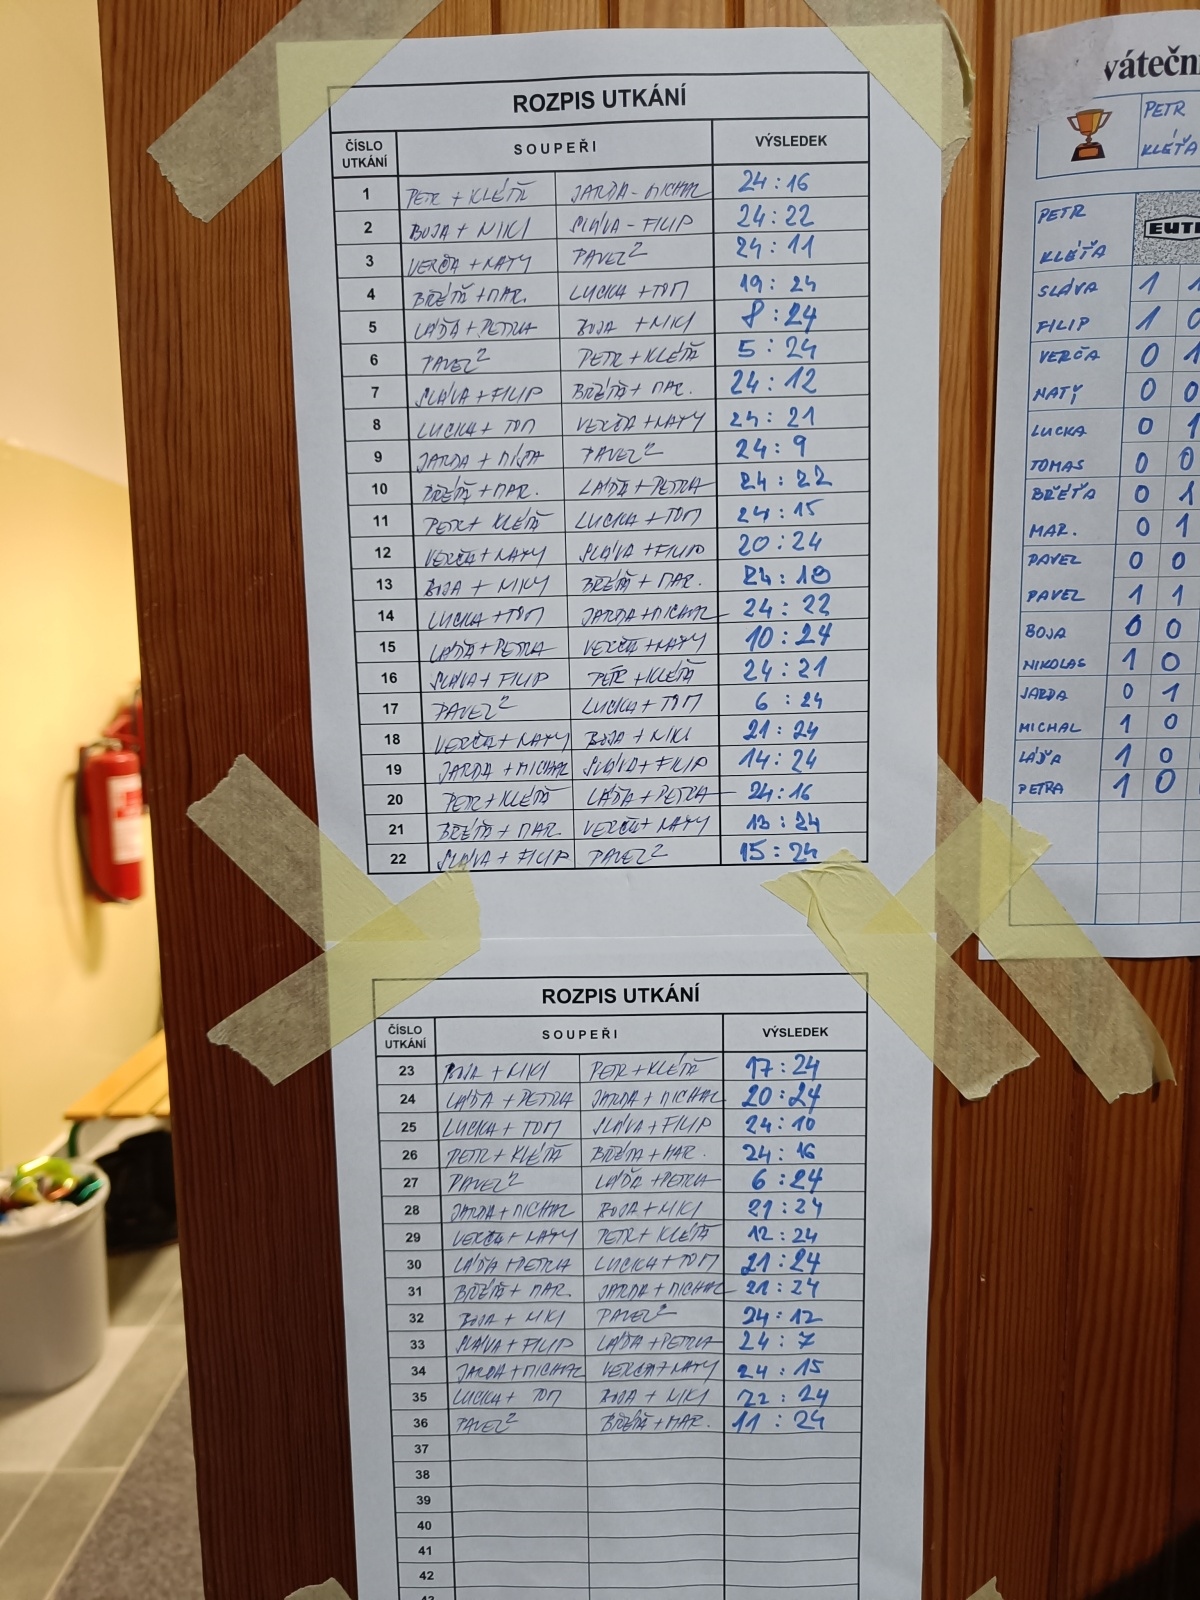 ROZPIS UTKÁNÍ
ČÍSLO UTKÁNÍ SOUPEŘI VÝSLEDEK
1 PETR + KLÉŤA JARDA - MICHAL 24:16
2 BOJA + NIKI SLÁVA - FILIP 24:22
3 VERČA + NATY PAVEL² 24:11
4 BŘÉŤA + MAR. LUCKA + TOM 19:24
5 LÁĎA + PETRA BOJA + NIKI 8:24
6 PAVEL² PETR + KLÉŤA 5:24
7 SLÁVA + FILIP BŘÉŤA + MAR. 24:12
8 LUCKA + TOM VERČA + NATY 24:21
9 JARDA + MÍŠA PAVEL² 24:9
10 BŘÉŤA + MAR. LÁĎA + PETRA 24:22
11 PETR + KLÉŤA LUCKA + TOM 24:15
12 VERČA + NATY SLÁVA + FILIP 20:24
13 BOJA + NIKY BŘÉŤA + MAR. 24:18
14 LUCKA + TOM JARDA + MICHAL 24:22
15 LÁĎA + PETRA VERČA + NATY 10:24
16 SLÁVA + FILIP PETR + KLÉŤA 24:21
17 PAVEL² LUCKA + TOM 6:24
18 VERČA + NATY BOJA + NIKI 21:24
19 JARDA + MICHAL SLÁVA + FILIP 14:24
20 PETR + KLÉŤA LÁĎA + PETRA 24:16
21 BŘÉŤA + MAR. VERČA + NATY 13:24
22 SLÁVA + FILIP PAVEL² 15:24
ROZPIS UTKÁNÍ
ČÍSLO UTKÁNÍ SOUPEŘI VÝSLEDEK
23 BOJA + NIKI PETR + KLÉŤA 17:24
24 LÁĎA + PETRA JARDA + MICHAL 20:24
25 LUCKA + TOM SLÁVA + FILIP 24:10
26 PETR + KLÉŤA BŘÉŤA + MAR. 24:16
27 PAVEL² LÁĎA + PETRA 6:24
28 JARDA + MICHAL BOJA + NIKI 21:24
29 VERČA + NATY PETR + KLÉŤA 12:24
30 LÁĎA + PETRA LUCKA + TOM 21:24
31 BŘÉŤA + MAR. JARDA + MICHAL 21:24
32 BOJA + NIKI PAVEL² 24:12
33 SLÁVA + FILIP LÁĎA + PETRA 24:7
34 JARDA + MICHAL VERČA + NATY 24:15
35 LUCKA + TOM BOJA + NIKI 22:24
36 PAVEL² BŘÉŤA + MAR. 11:24
37
38
39
40
41
42
43
vátečn
PETR
KLÉŤA
PETR
KLÉŤA
EUT
SLÁVA 1 1
FILIP 1 0
VERČA 0 1
NATÝ 0 0
LUCKA 0 1
TOMAS 0 0
BŘÉŤA 0 1
MAR. 0 1
PAVEL 0 0
PAVEL 1 1
BOJA 0 0
NIKOLAS 1 0
JARDA 0 1
MICHAL 1 0
LÁĎA 1 0
PETRA 1 0